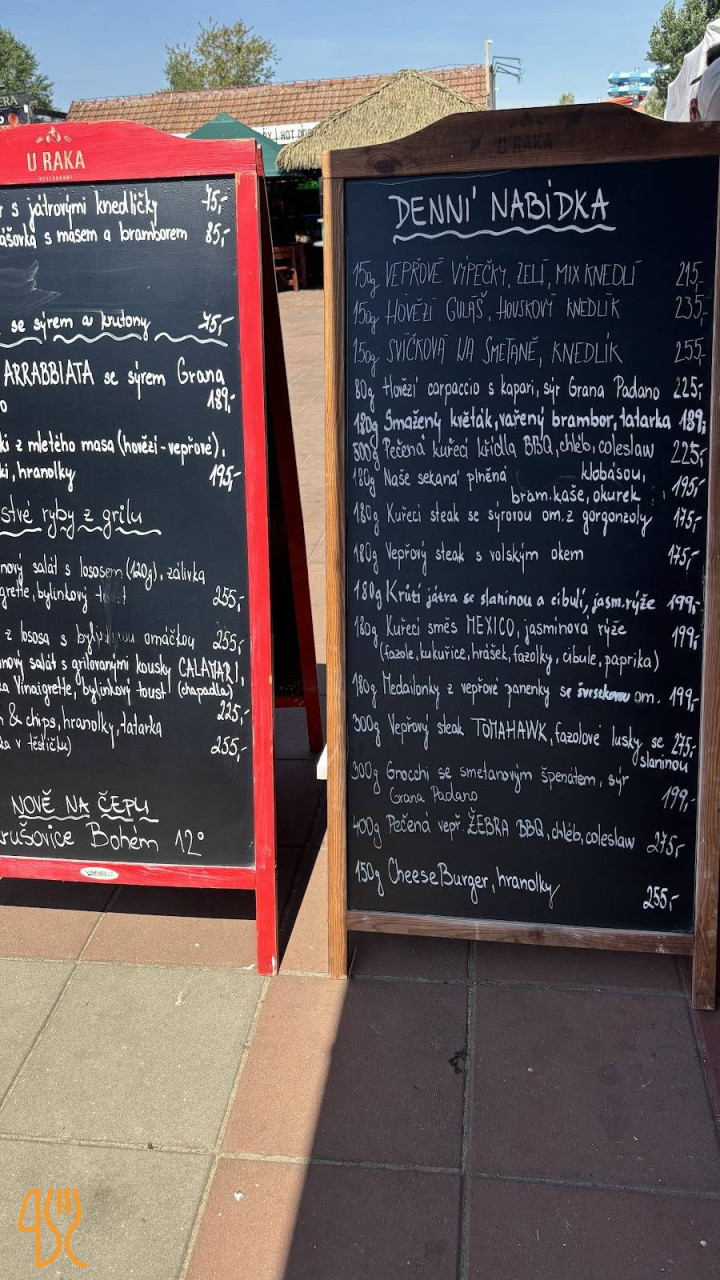 U RAKA
RESTAURANT
s játrovými knedlíčky 75,-
s masem a bramborem 85,-
se sýrem a krutony 75,-
ARRABBIATA se sýrem Grana
189,-
z mletého masa (hovězí-vepřové),
hranolky 195,-
ryby z grilu
salát s lososem (120g), zálivka
bylinkový 255,-
z lososa s omáčkou 255,-
salát s grilovanými kousky CALAMARI,
Vinaigrette, bylinkový toust (chapadla)
225,-
& chips, hranolky, tatarka
v těstíčku) 255,-
NOVĚ NA ČEPU
Bohém 12°
HOT DOG
U RAKA
DENNÍ NABÍDKA
150g VEPŘOVÉ VÝPEČKY, ZELÍ, MIX KNEDLÍ 215,-
150g HOVĚZÍ GULÁŠ, HOUSKOVÝ KNEDLÍK 235,-
150g SVÍČKOVÁ NA SMETANĚ, KNEDLÍK 255,-
80g Hovězí carpaccio s kapari, sýr Grana Padano 225,-
180g Smažený květák, vařený brambor, tatarka 189,-
500g Pečená kuřecí křídla BBQ, chléb, coleslaw 225,-
180g Naše sekaná plněná klobásou,
bram. kaše, okurek 195,-
180g Kuřecí steak se sýrovou om. z gorgonzoly 175,-
180g Vepřový steak s volským okem 175,-
180g Krůtí játra se slaninou a cibulí, jasm. rýže 199,-
180g Kuřecí směs MEXICO, jasmínová rýže 199,-
(fazole, kukuřice, hrášek, fazolky, cibule, paprika)
180g Medailonky z vepřové panenky se om. 199,-
300g Vepřový steak TOMAHAWK, fazolové lusky se 275,-
slaninou
300g Gnocchi se smetanovým špenátem, sýr
Grana Padano 199,-
400g Pečená vepř. ŽEBRA BBQ, chléb, coleslaw 275,-
150g CheeseBurger, hranolky 255,-